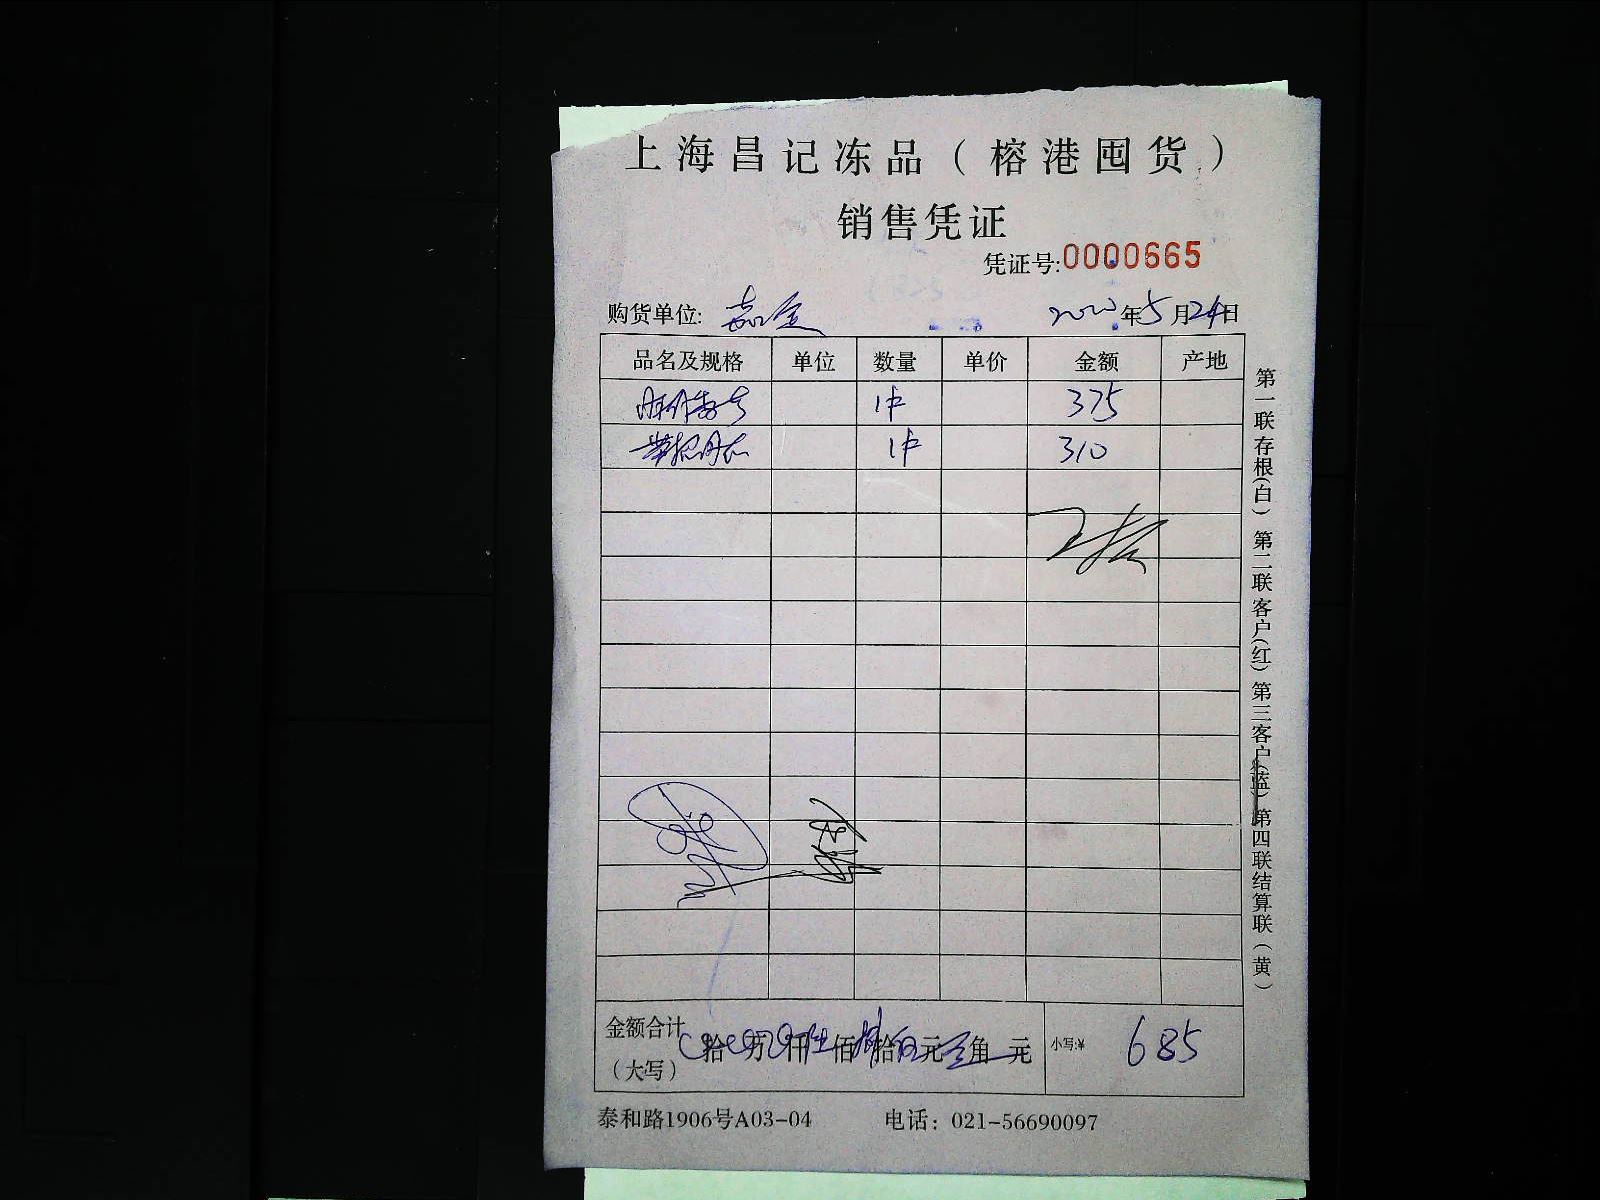 上海昌记冻品（榕港囤货）
销售凭证
凭证号:0000665
购货单位: 年5月24日
品名及规格 单位 数量 单价 金额 产地
1件 375
1件 310
金额合计 拾 万 仟 佰 拾 元 角 元 小写:¥ 685
（大写）
泰和路1906号A03-04 电话：021-56690097
第一联存根(白) 第二联客户(红) 第三客户(蓝) 第四联结算联(黄)